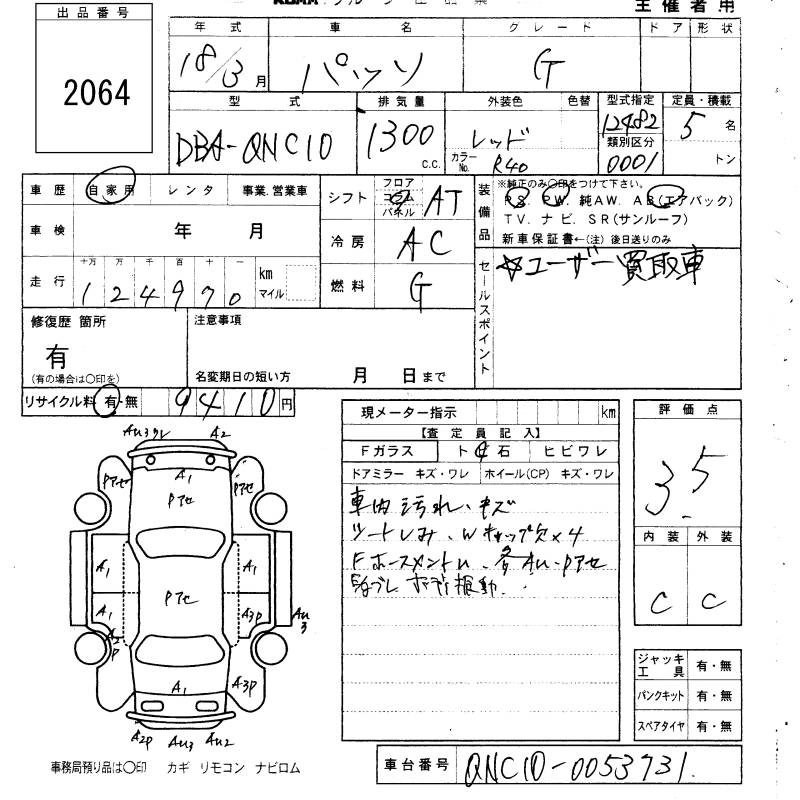 主催者用
出品番号
2064
年式 車名 グレード ドア 形状
18/3月 パッソ G
型式 排気量 外装色 色替 型式指定 定員・積載
DBA-QNC10 1300 C.C. レッド 12482 5名
カラーNo. R40 類別区分 0001 トン
車歴 自家用 レンタ 事業.営業車
シフト フロア コラム パネル AT
装備品 ※純正のみ〇印をつけて下さい。
PS PW 純AW. AB(エアバック)
TV. ナビ. SR(サンルーフ)
新車保証書←(注) 後日送りのみ
車検 年 月
冷房 AC
走行 十万 万 千 百 十 一 km マイル
124970
燃料 G
セールスポイント ☆ユーザー買取車
修復歴 箇所
有
(有の場合は〇印を)
注意事項
名変期日の短い方 月 日まで
リサイクル料 有・無 9410円
現メーター指示 km
【査定員記入】
Fガラス ト石 ヒビワレ
ドアミラー キズ・ワレ ホイール(CP) キズ・ワレ
車内汚れ、キズ
シートしみ、Wキャップ欠×4
各AU・Pアセ
ボディ振動
評価点
3.5
内装 外装
C C
AU3 ワレ A2
A1
Pアセ Pアセ Pアセ
A1 A1
Pアセ
A1 A3P AU3
A2P
A1 A3P
A2P AU3 AU2
ジャッキ工具 有・無
パンクキット 有・無
スペアタイヤ 有・無
事務局預り品は〇印 カギ リモコン ナビロム
車台番号 QNC10-0053731